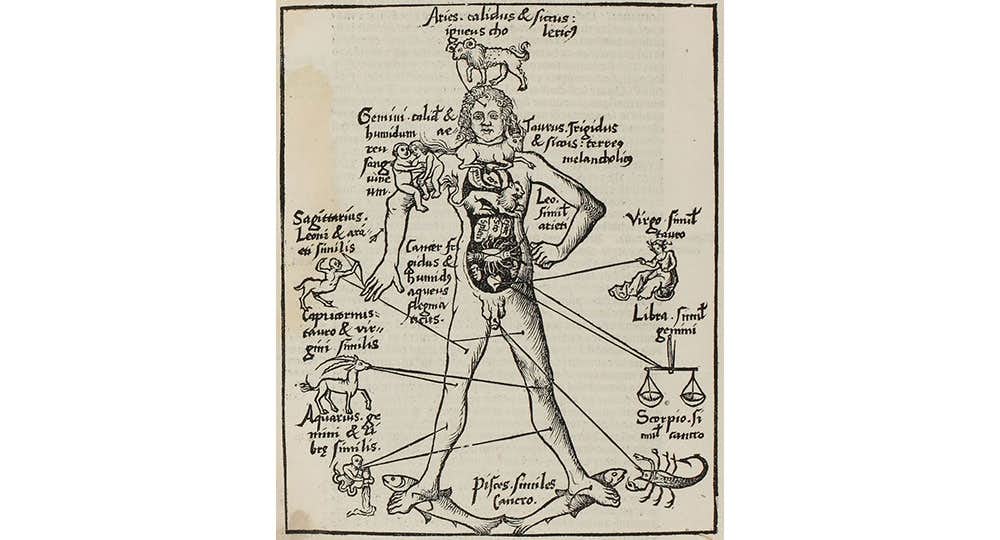 Aries. calidus & siccus:
igneus cho lericꝰ
Gemini. calid₉ &
humidum ae-
reu
sang
uine
um.
Taurus. frigidus
& siccus: terreꝰ
melancholicꝰ
Leo.
simil
arieti
Virgo. simil
tauro
Sagittarius.
Leoni & ari-
eti similis
Cancer fri
gidus &
humidꝰ
aqueus
flegma
ticus.
Libra. simil
gemini
Capricornus:
tauro & vir-
gini similis
Scorpio. si
mil cancro
Aquarius. ge
mini & li
brę similis.
Pisces. similes
Cancro.